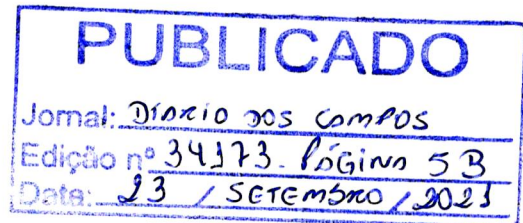 PUBLICADO
Jornal: DIARIO DOS CAMPOS
Edição nº 34173. PÁGINA 5B
Data: 23 / SETEMBRO / 2021